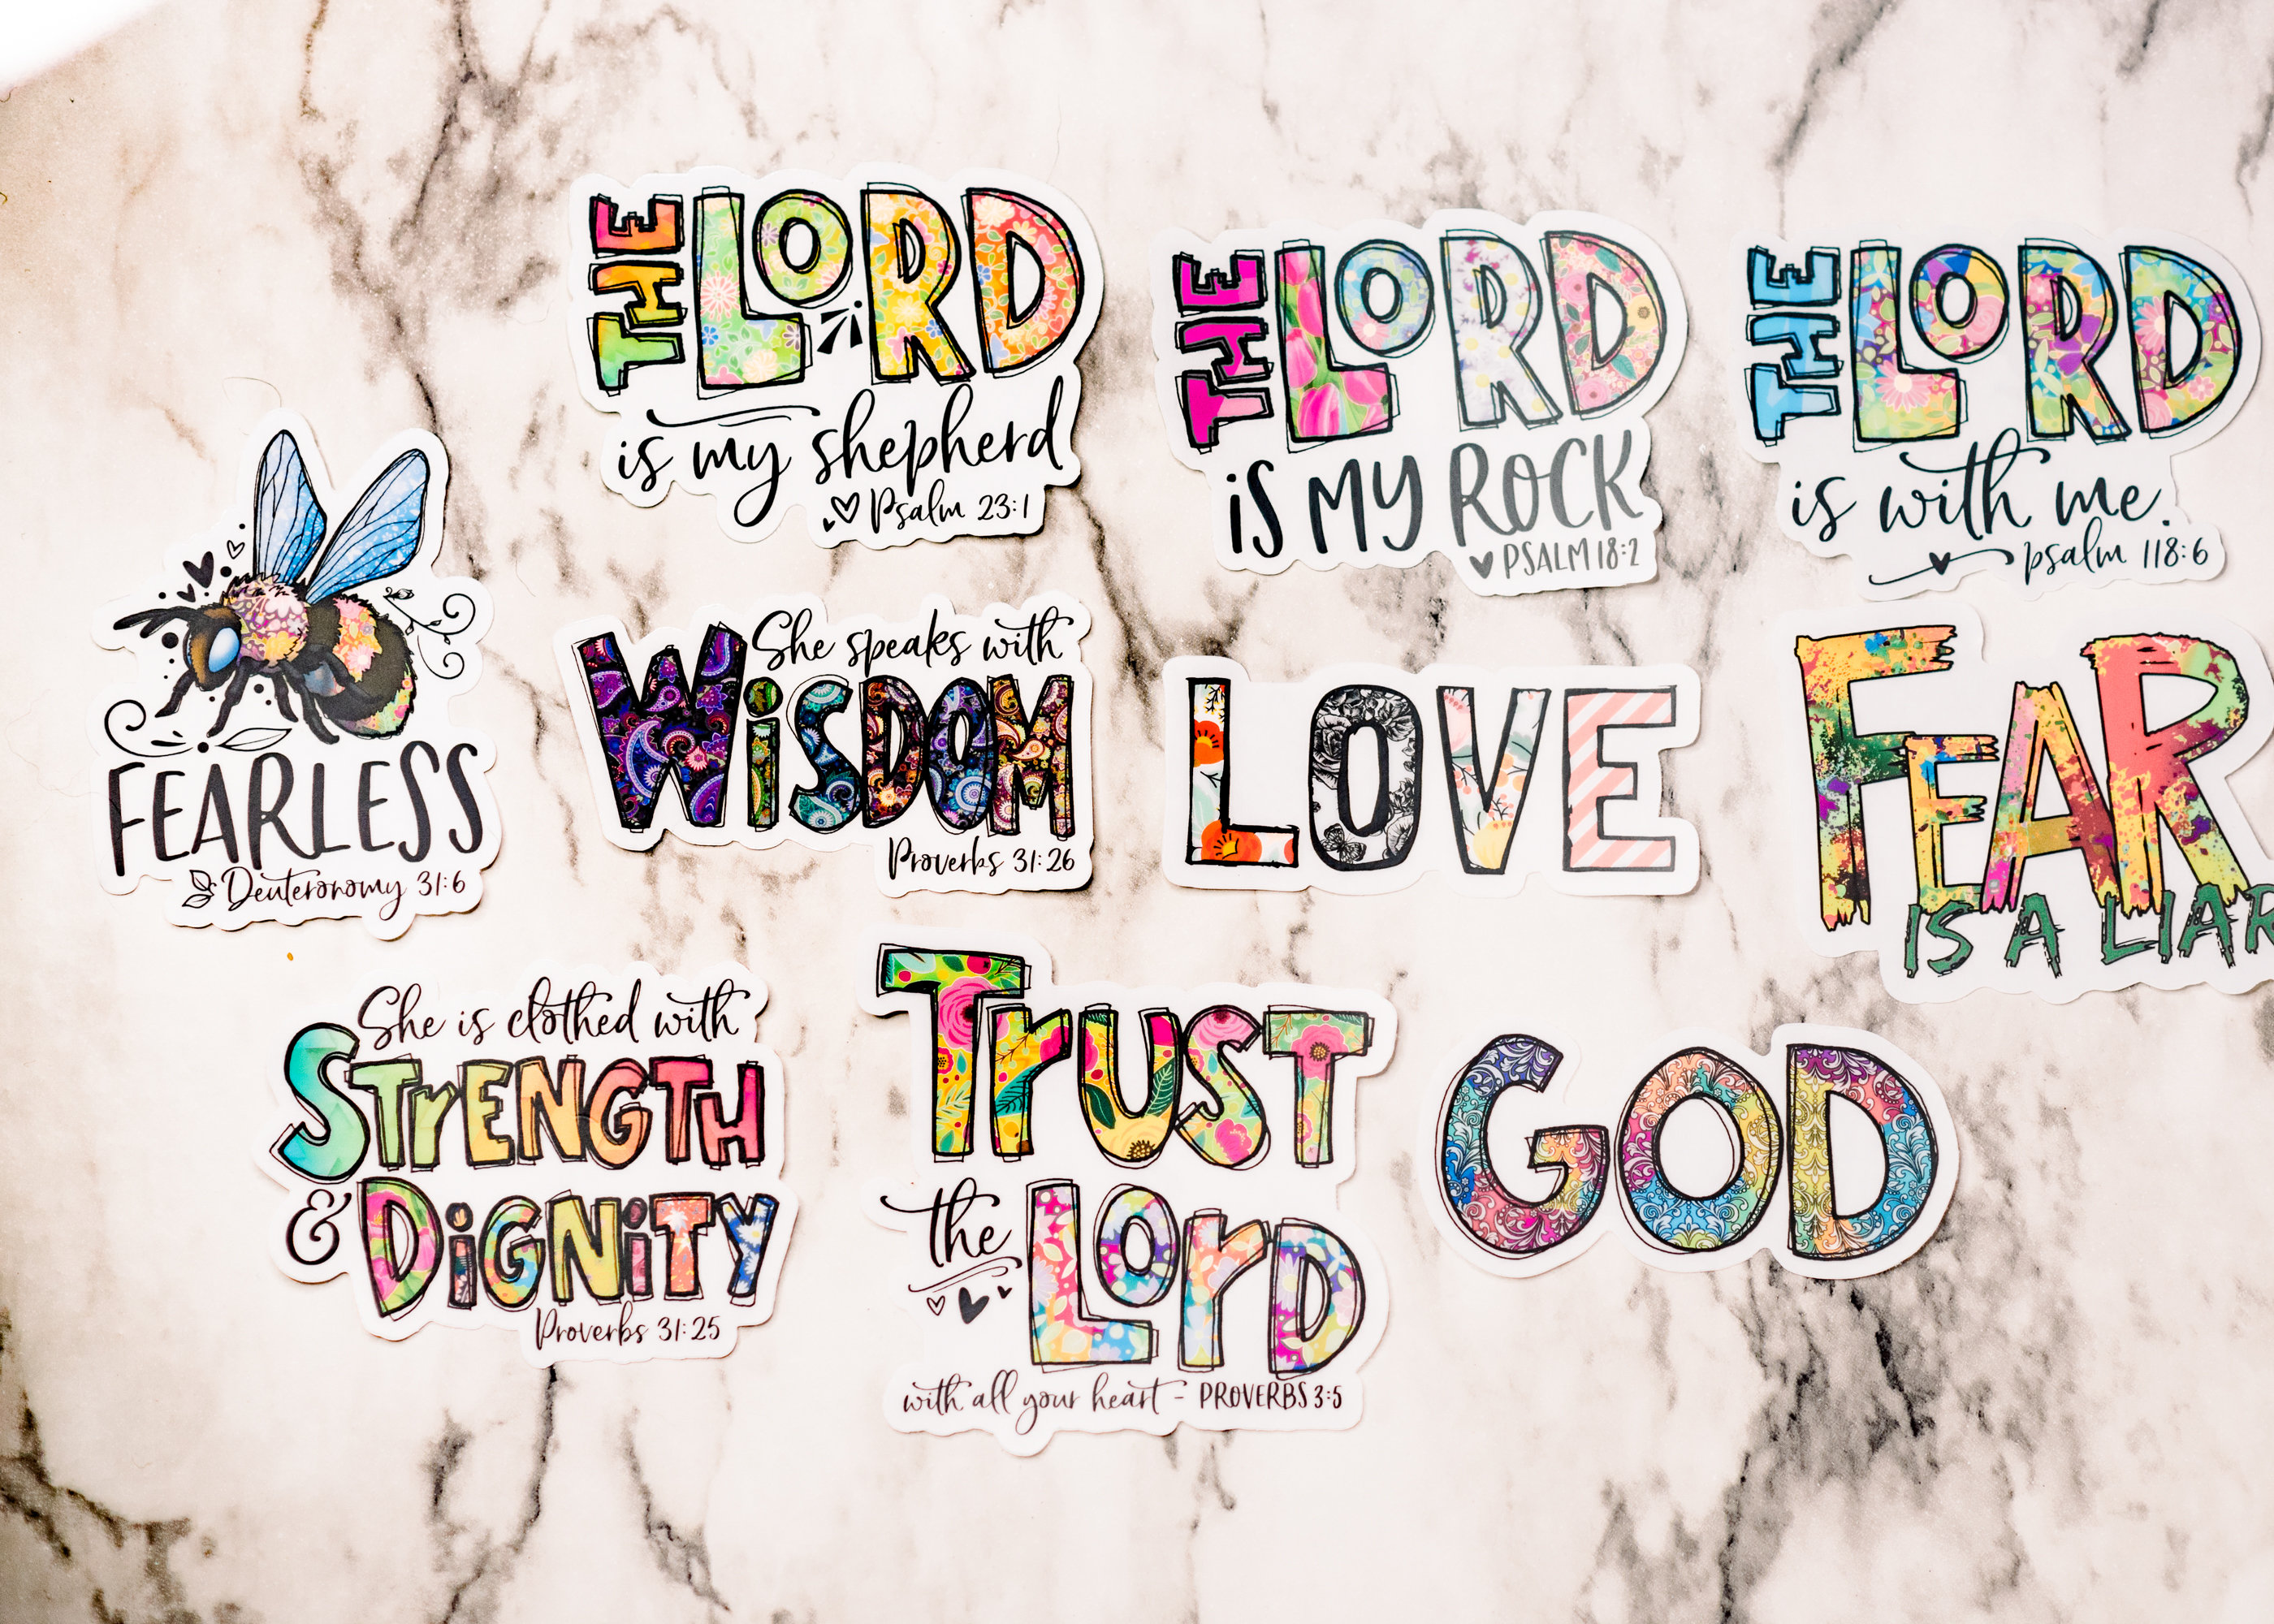 THE LORD
is my shepherd
Psalm 23:1
THE LORD
iS MY ROCK
PSALM 18:2
THE LORD
is with me.
psalm 118:6
FEARLESS
Deuteronomy 31:6
She speaks with
WiSDOM
Proverbs 31:26
LOVE
FEAR
IS A LIAR
She is clothed with
STrENGTH
& DiGNiTY
Proverbs 31:25
TrUST
the LOrD
with all your heart - PROVERBS 3:5
GOD